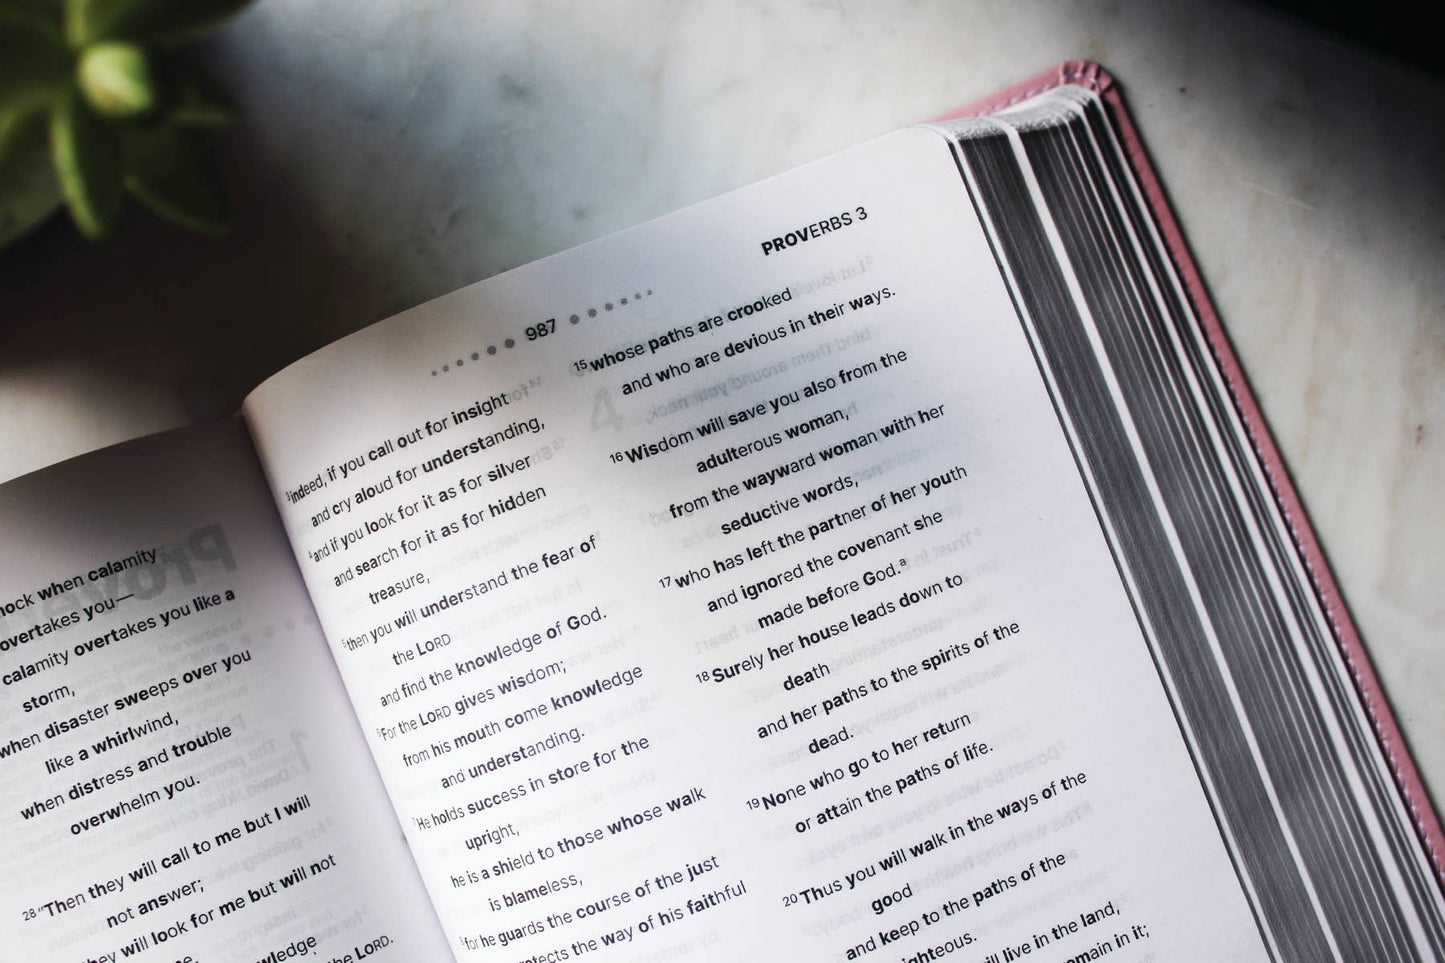 mock when calamity
overtakes you—
calamity overtakes you like a
storm,
when disaster sweeps over you
like a whirlwind,
when distress and trouble
overwhelm you.
28 "Then they will call to me but I will
not answer;
they will look for me but will not
the LORD.
987
PROVERBS 3
3 indeed, if you call out for insight
and cry aloud for understanding,
4 and if you look for it as for silver
and search for it as for hidden
treasure,
5 then you will understand the fear of
the LORD
and find the knowledge of God.
6 For the LORD gives wisdom;
from his mouth come knowledge
and understanding.
7 He holds success in store for the
upright,
he is a shield to those whose walk
is blameless,
8 for he guards the course of the just
protects the way of his faithful
15 whose paths are crooked
and who are devious in their ways.
16 Wisdom will save you also from the
adulterous woman,
from the wayward woman with her
seductive words,
17 who has left the partner of her youth
and ignored the covenant she
made before God.a
18 Surely her house leads down to
death
and her paths to the spirits of the
dead.
19 None who go to her return
or attain the paths of life.
20 Thus you will walk in the ways of the
good
and keep to the paths of the
righteous.
will live in the land,
remain in it;